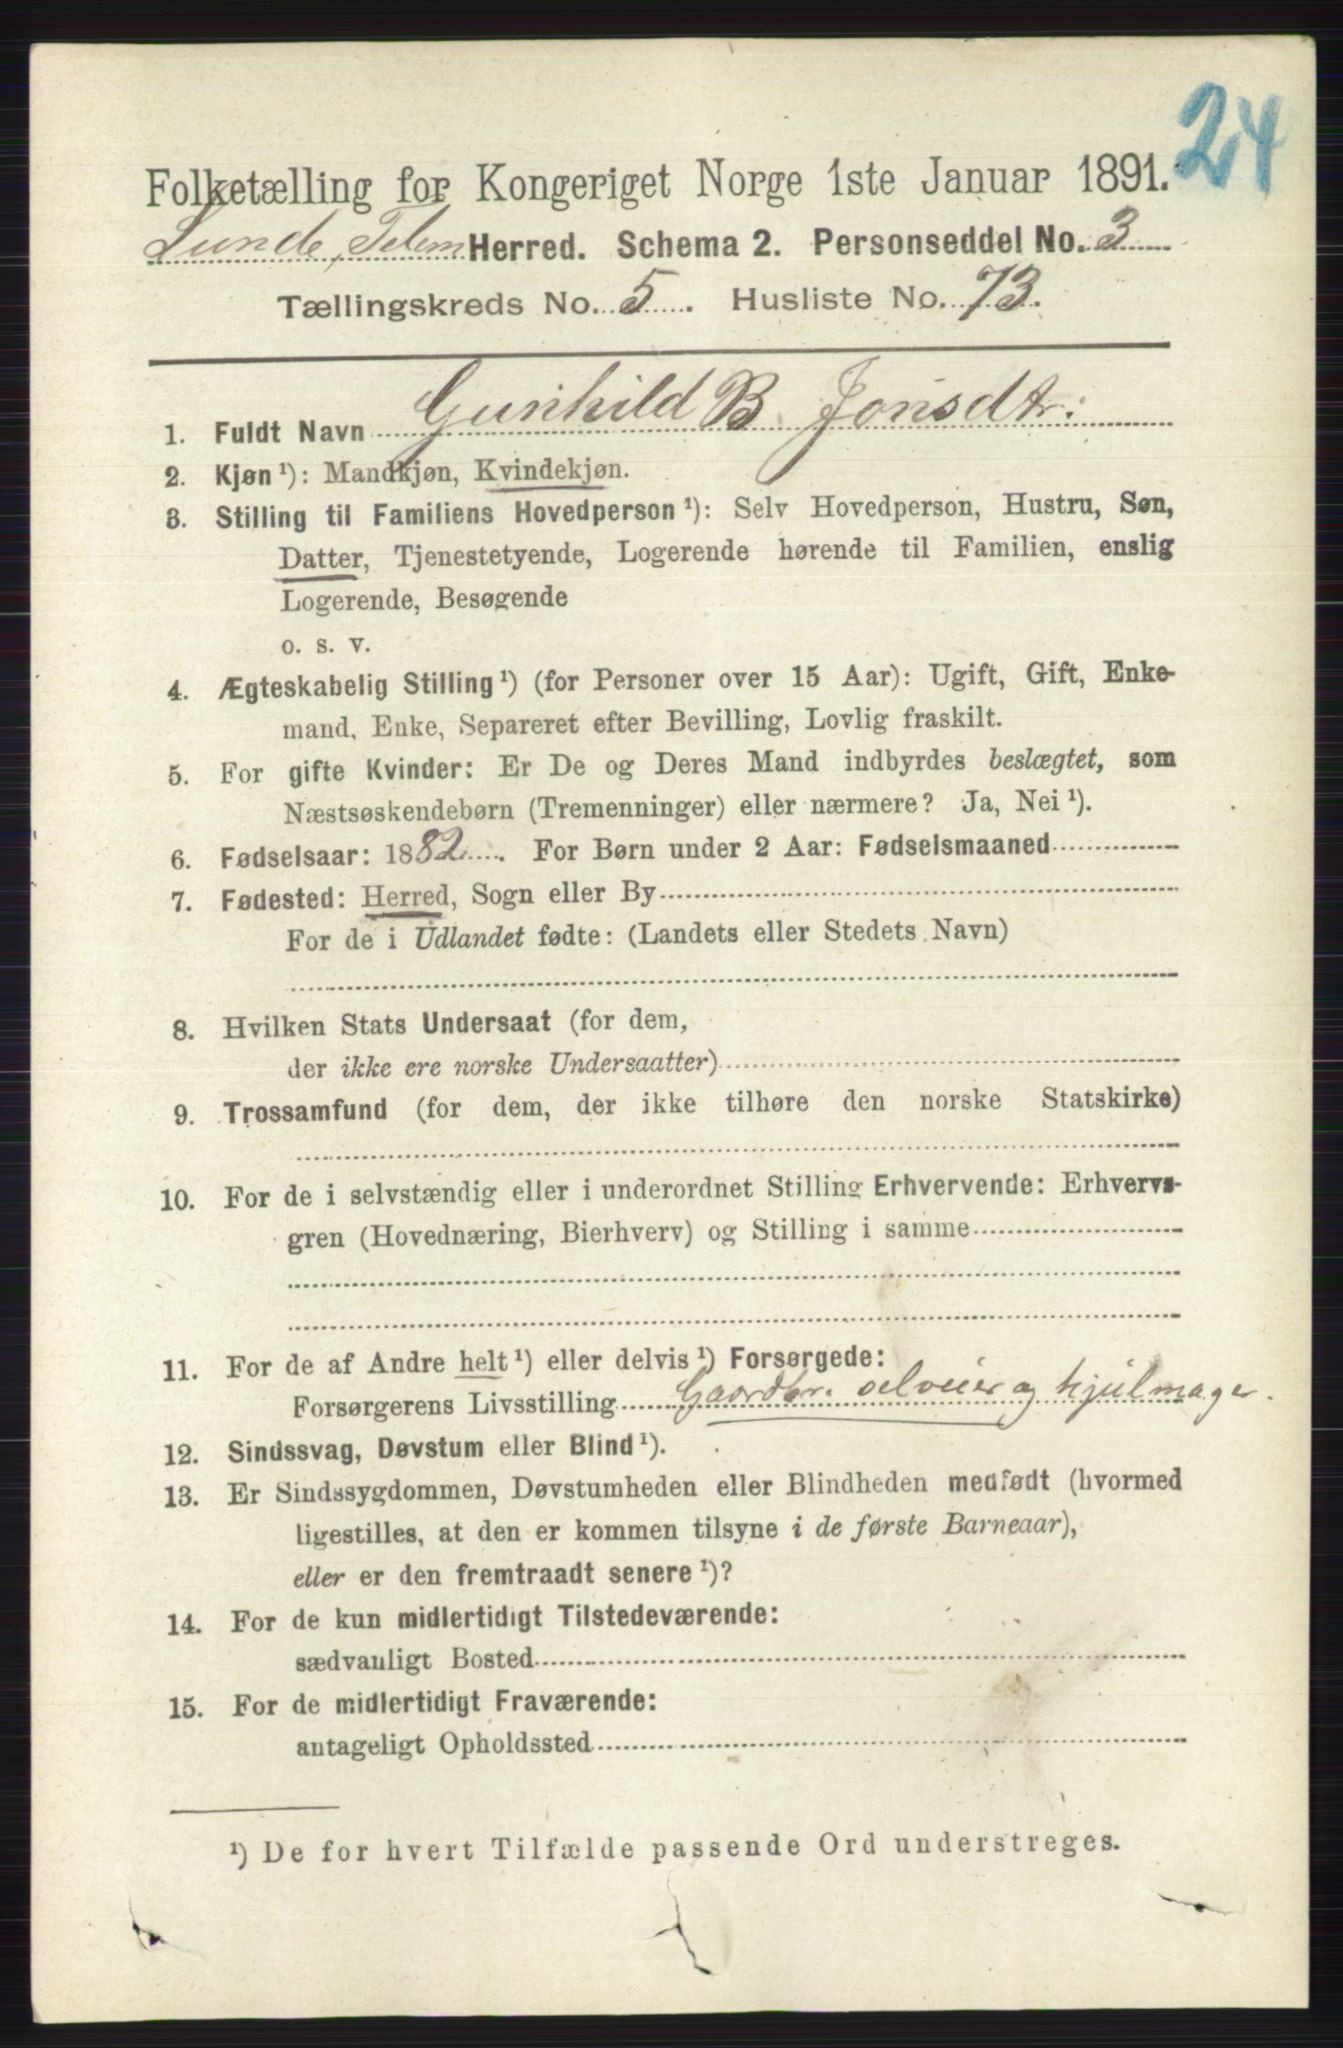 24
Folketælling for Kongeriget Norge 1ste Januar 1891.
Lunde, Telem Herred. Schema 2. Personseddel No. 3
Tællingskreds No. 5. Husliste No. 73.
1. Fuldt Navn Gunhild B. Jonsdtr:
2. Kjøn ¹): Mandkjøn, Kvindekjøn.
3. Stilling til Familiens Hovedperson ¹): Selv Hovedperson, Hustru, Søn,
Datter, Tjenestetyende, Logerende hørende til Familien, enslig
Logerende, Besøgende
o. s. v.
4. Ægteskabelig Stilling ¹) (for Personer over 15 Aar): Ugift, Gift, Enke-
mand, Enke, Separeret efter Bevilling, Lovlig fraskilt.
5. For gifte Kvinder: Er De og Deres Mand indbyrdes beslægtet, som
Næstsøskendebørn (Tremenninger) eller nærmere? Ja, Nei ¹).
6. Fødselsaar: 1882. For Børn under 2 Aar: Fødselsmaaned
7. Fødested: Herred, Sogn eller By
For de i Udlandet fødte: (Landets eller Stedets Navn)
8. Hvilken Stats Undersaat (for dem,
der ikke ere norske Undersaatter)
9. Trossamfund (for dem, der ikke tilhøre den norske Statskirke)
10. For de i selvstændig eller i underordnet Stilling Erhvervende: Erhvervs-
gren (Hovednæring, Bierhverv) og Stilling i samme
11. For de af Andre helt ¹) eller delvis ¹) Forsørgede:
Forsørgerens Livsstilling Gaardbr. selveier og hjulmager.
12. Sindssvag, Døvstum eller Blind ¹).
13. Er Sindssygdommen, Døvstumheden eller Blindheden medfødt (hvormed
ligestilles, at den er kommen tilsyne i de første Barneaar),
eller er den fremtraadt senere ¹)?
14. For de kun midlertidigt Tilstedeværende:
sædvanligt Bosted
15. For de midlertidigt Fraværende:
antageligt Opholdssted
¹) De for hvert Tilfælde passende Ord understreges.